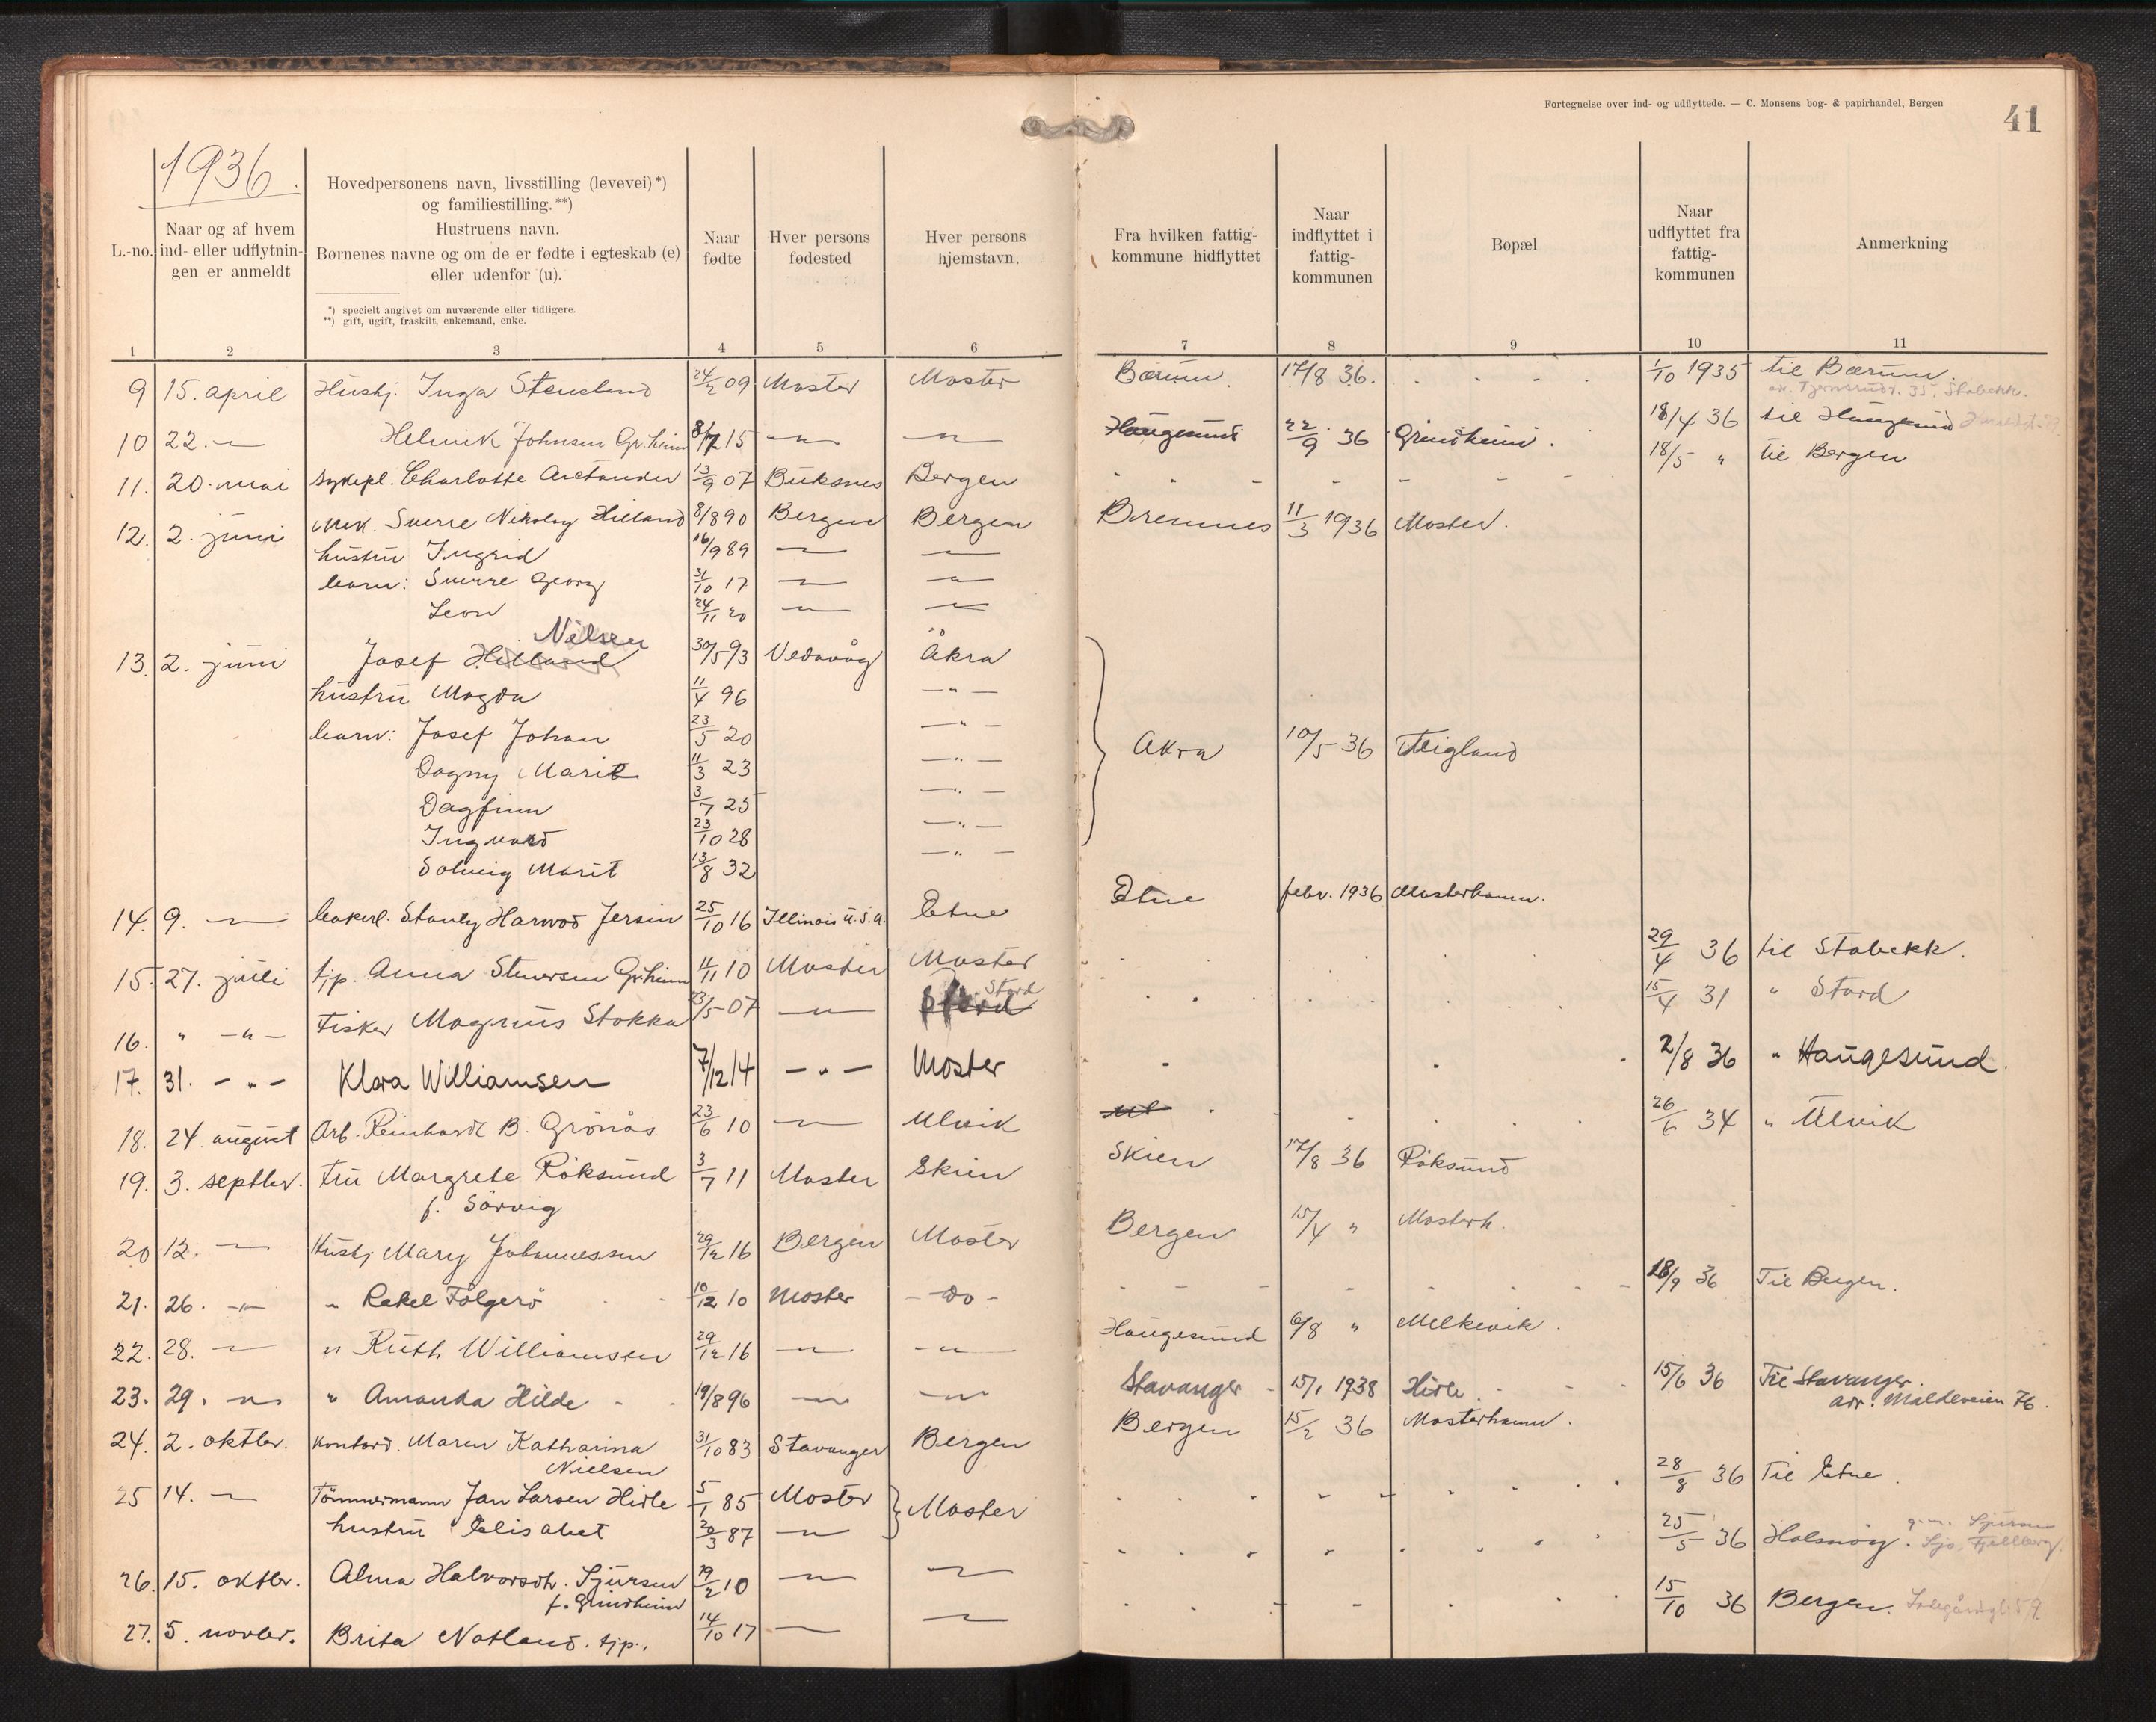 Fortegnelse over ind- og udflyttede. — C. Monsens bog- & papirhandel, Bergen
41
1936.
L.-no.
Naar og af hvem ind- eller udflytnin- gen er anmeldt
Hovedpersonens navn, livsstilling (levevei) *) og familiestilling. **)
Hustruens navn.
Børnenes navne og om de er fødte i egteskab (e) eller udenfor (u).
*) specielt angivet om nuværende eller tidligere.
**) gift, ugift, fraskilt, enkemand, enke.
Naar fødte
Hver persons fødested
Hver persons hjemstavn.
Fra hvilken fattig- kommune hidflyttet
Naar indflyttet i fattig- kommunen
Bopæl
Naar udflyttet fra fattig- kommunen
Anmerkning
1 2 3 4 5 6 7 8 9 10 11
9 15. april Hushj. Inga Stensland 24/2 09 Moster Moster Bærum 17/8 36. 1/10 1935 til Bærum.
35. Stabekk.
10 22. — Helmik Johnsen Gr.heim 8/12 15 — " — — " — Haugesund 22/9 36 Grindheim. 18/4 36 til Haugesund
11. 20. mai Sykepl. Charlotte Arctander 13/9 07 Buksnes Bergen 18/5 " til Bergen
12. 2. juni Mek. Sverre Nikolay Hilland 8/8 90 Bergen Bergen Bremnes 11/3 1936 Moster.
hustru Ingrid 16/9 89 — " — — " —
barn: Sverre Georg 31/10 17 — " — — " —
Leon 24/11 20 — " — — " —
Nilsen
13. 2. juni Josef Hilland 30/5 93 Vedavåg Åkra
hustru Magda 11/4 96 — " —
barn: Josef Johan 23/5 20 — " — Akra 10/5 36 Teigland
Dagny Marit 11/3 23 — " —
Dagfinn 3/7 25 — " —
Ingvard 23/10 28 — " —
Solveig Marit 13/8 32 — " —
14. 9. — bakerl. Stanly Harwod Jersin 25/10 16 Illinois U.S.A. Etne Etne febr. 1936 Mosterhamn.
15. 27. juli tjp. Anna Stenersen Gr.heim 11/11 10 Moster Moster 29/4 36 til Stabekk.
16. " — " — Fisker Magnus Stokka 23/5 07 — " — Stord Stord 15/4 31 " Stord
17. 31. — " — Klara Williamsen 7/12 14 — " — Moster 2/8 36 " Haugesund.
18. 24. august Arb. Reinhardt B. Grönås 23/6 10 — " — Ulvik 26/6 34 " Ulvik
19. 3. septbr. fru Margrete Röksund 3/7 11 Moster Skien Skien 17/8 36 Röksund
f. Sörvig
20 12. — Hushj Mary Johannessen 29/12 16 Bergen Moster Bergen 15/4 " Mosterh.
21. 26. — " — " Rakel Folgerö 10/12 10 Moster - do - 18/9 36 Til Bergen.
22. 28. — " Ruth Williamsen 29/12 16 — " — — " — Haugesund 6/8 " Melkevik.
23. 29. — " Amanda Hilde 19/8 96 — " — — " — Stavanger 15/1 1938 Hisle. 15/6 36 Til Stavanger.
adr. Maldeveien 76.
24. 2. oktbr. Kontord. Maren Katharina 31/10 83 Stavanger Bergen Bergen 15/2 36 Mosterhamn.
Nielsen
25 14. — Tömmermann Jan Larsen Hisle 5/1 85 Moster Moster 28/8 36 Til Etne.
hustru Elisabet 20/3 87 — " —
26. 15. oktbr. Alma Halvorsdtr. Sjursen 29/2 10 — " — — " — 25/5 36 Halsnöy.
f. Grindheim
27. 5. novbr. Brita Notland. tjp. 14/10 17 — " — — " — 15/10 36 Bergen.